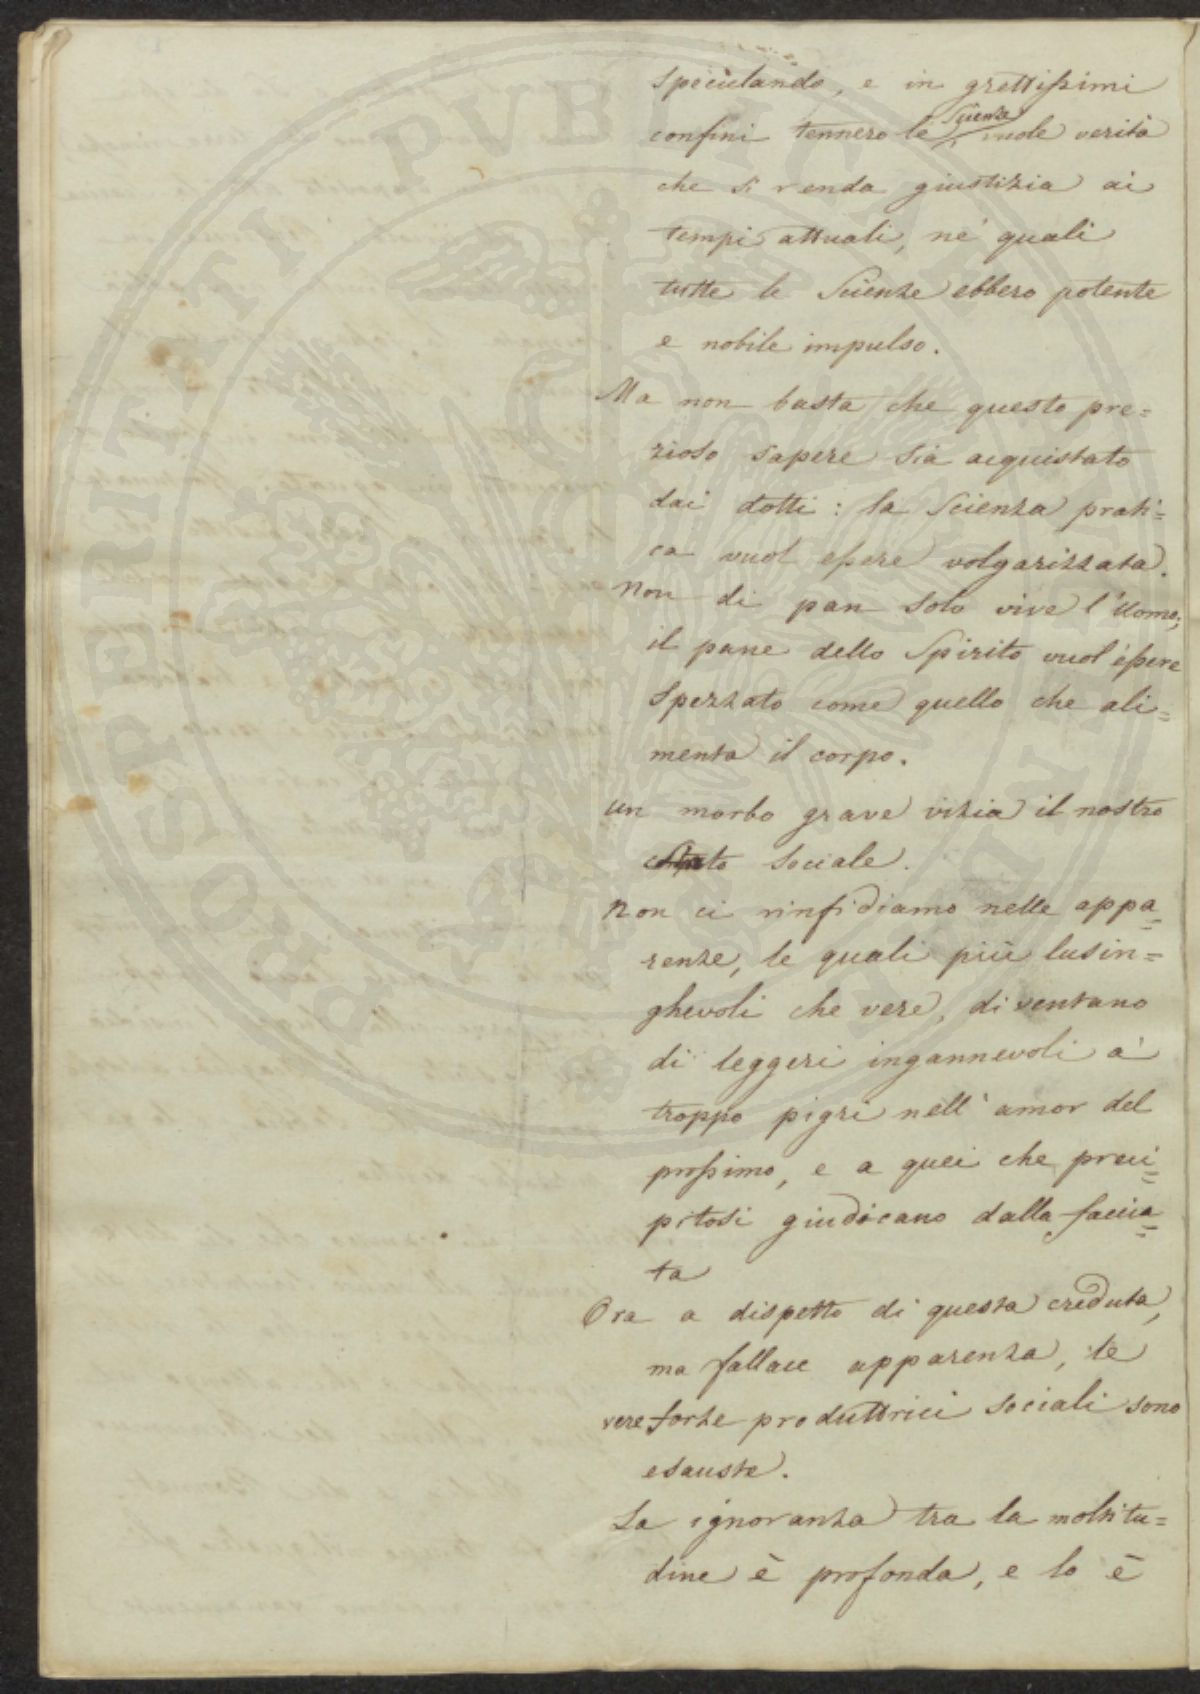 speculando, e in grettissimi
confini tennero le Scienze vuole verità
che si renda giustizia ai
tempi attuali, ne' quali
tutte le Scienze ebbero potente
e nobile impulso.
Ma non basta che questo pre=
zioso sapere sia acquistato
dai dotti: la Scienza prati=
ca vuol essere volgarizzata.
Non di pan solo vive l'Uomo;
il pane dello Spirito vuol essere
spezzato come quello che ali=
menta il corpo.
un morbo grave vizia il nostro
stato sociale.
Non ci rinfidiamo nelle appa=
renze, le quali più lusin=
ghevoli che vere, diventano
di leggeri ingannevoli a'
troppo pigri nell'amor del
prossimo, e a quei che preci=
pitosi giudicano dalla faccia=
ta
Ora a dispetto di questa creduta,
ma fallace apparenza, le
vere forze produttrici sociali sono
esauste.
La ignoranza tra la moltitu=
dine è profonda, e lo è
PROSPERITATI PVBLICAE